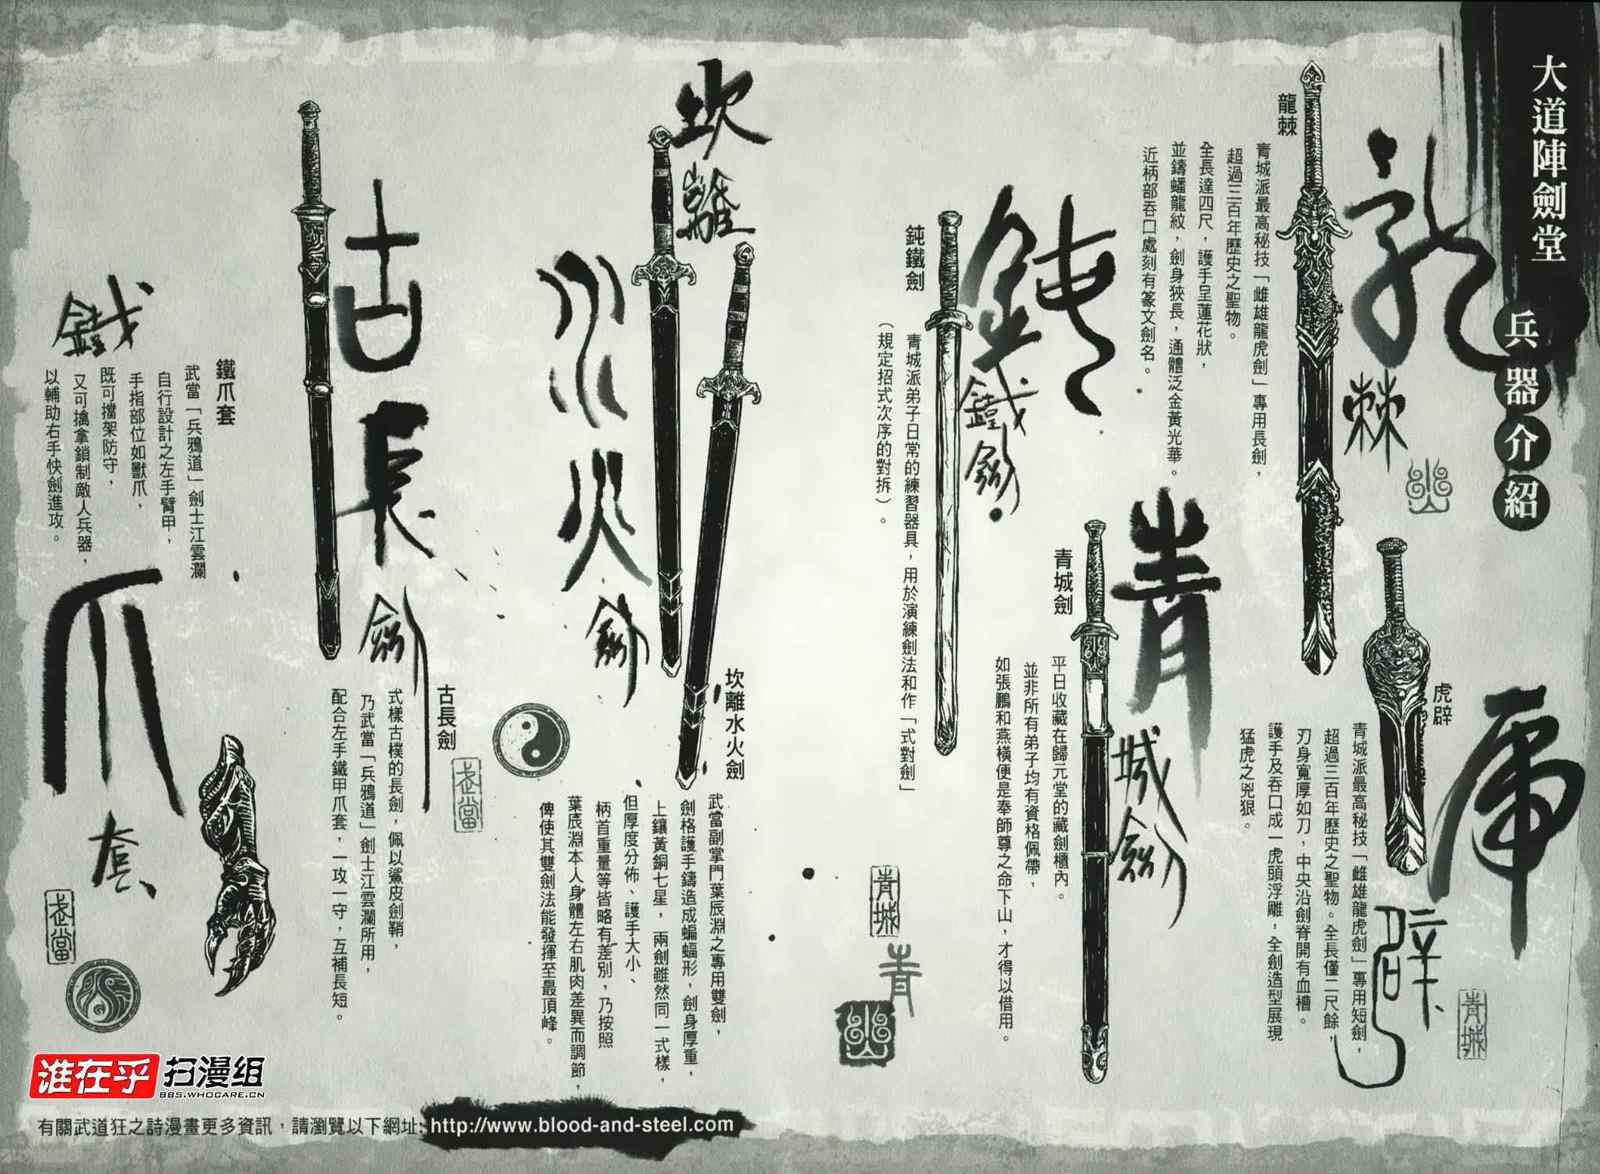 大道陣劍堂
兵器介紹
龍棘
龍棘
青城派最高秘技「雌雄龍虎劍」專用長劍，
超過三百年歷史之聖物。
全長達四尺，護手呈蓮花狀，
並鑄蟠龍紋，劍身狹長，通體泛金黃光華。
近柄部吞口處刻有篆文劍名。
虎辟
虎辟
青城派最高秘技「雌雄龍虎劍」專用短劍，
超過三百年歷史之聖物。全長僅二尺餘，
刃身寬厚如刀，中央沿劍脊開有血槽。
護手及吞口成一虎頭浮雕，全劍造型展現
猛虎之兇狠。
青城
鈍鐵劍
鈍鐵劍
青城派弟子日常的練習器具，用於演練劍法和作「式對劍」
（規定招式次序的對拆）。
青城劍
青城劍
平日收藏在歸元堂的藏劍櫃內。
並非所有弟子均有資格佩帶，
如張鵬和燕橫便是奉師尊之命下山，才得以借用。
青城
青
坎離
水火劍
坎離水火劍
武當副掌門葉辰淵之專用雙劍，
劍格護手鑄造成蝙蝠形，劍身厚重，
上鑲黃銅七星，兩劍雖然同一式樣，
但厚度分佈、護手大小、
柄首重量等皆略有差別，乃按照
葉辰淵本人身體左右肌肉差異而調節，
俾使其雙劍法能發揮至最頂峰。
古長劍
古長劍
式樣古樸的長劍，佩以鯊皮劍鞘，
乃武當「兵鴉道」劍士江雲瀾所用，
配合左手鐵甲爪套，一攻一守，互補長短。
武當
鐵爪套
鐵爪套
武當「兵鴉道」劍士江雲瀾
自行設計之左手臂甲，
手指部位如獸爪，
既可擋架防守，
又可擒拿鎖制敵人兵器，
以輔助右手快劍進攻。
武當
谁在乎扫漫组
BBS.WHOCARE.CN
有關武道狂之詩漫畫更多資訊，請瀏覽以下網址:http://www.blood-and-steel.com